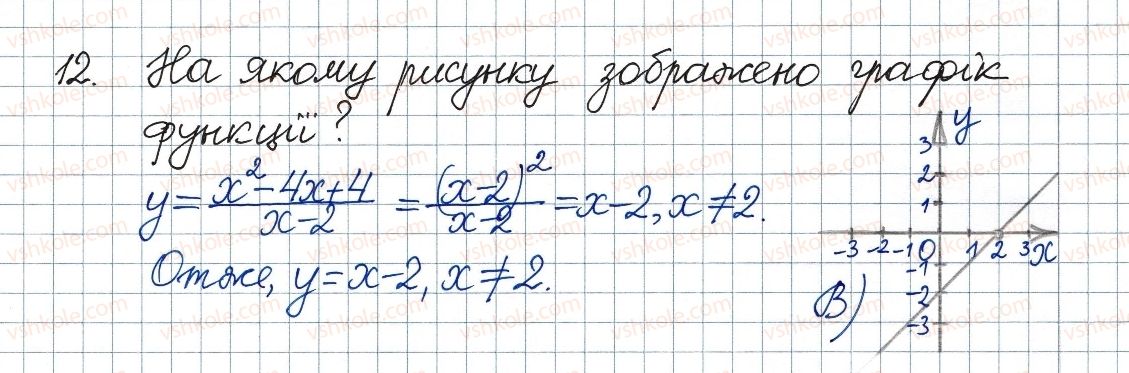 12. На якому рисунку зображено графік
функції?
y = (x² - 4x + 4)/(x - 2) = (x - 2)²/(x - 2) = x - 2, x ≠ 2.
Отже, y = x - 2, x ≠ 2.
В)
y
3
2
1
-3 -2 -1 0 1 2 3 x
-1
-2
-3
vshkole.com